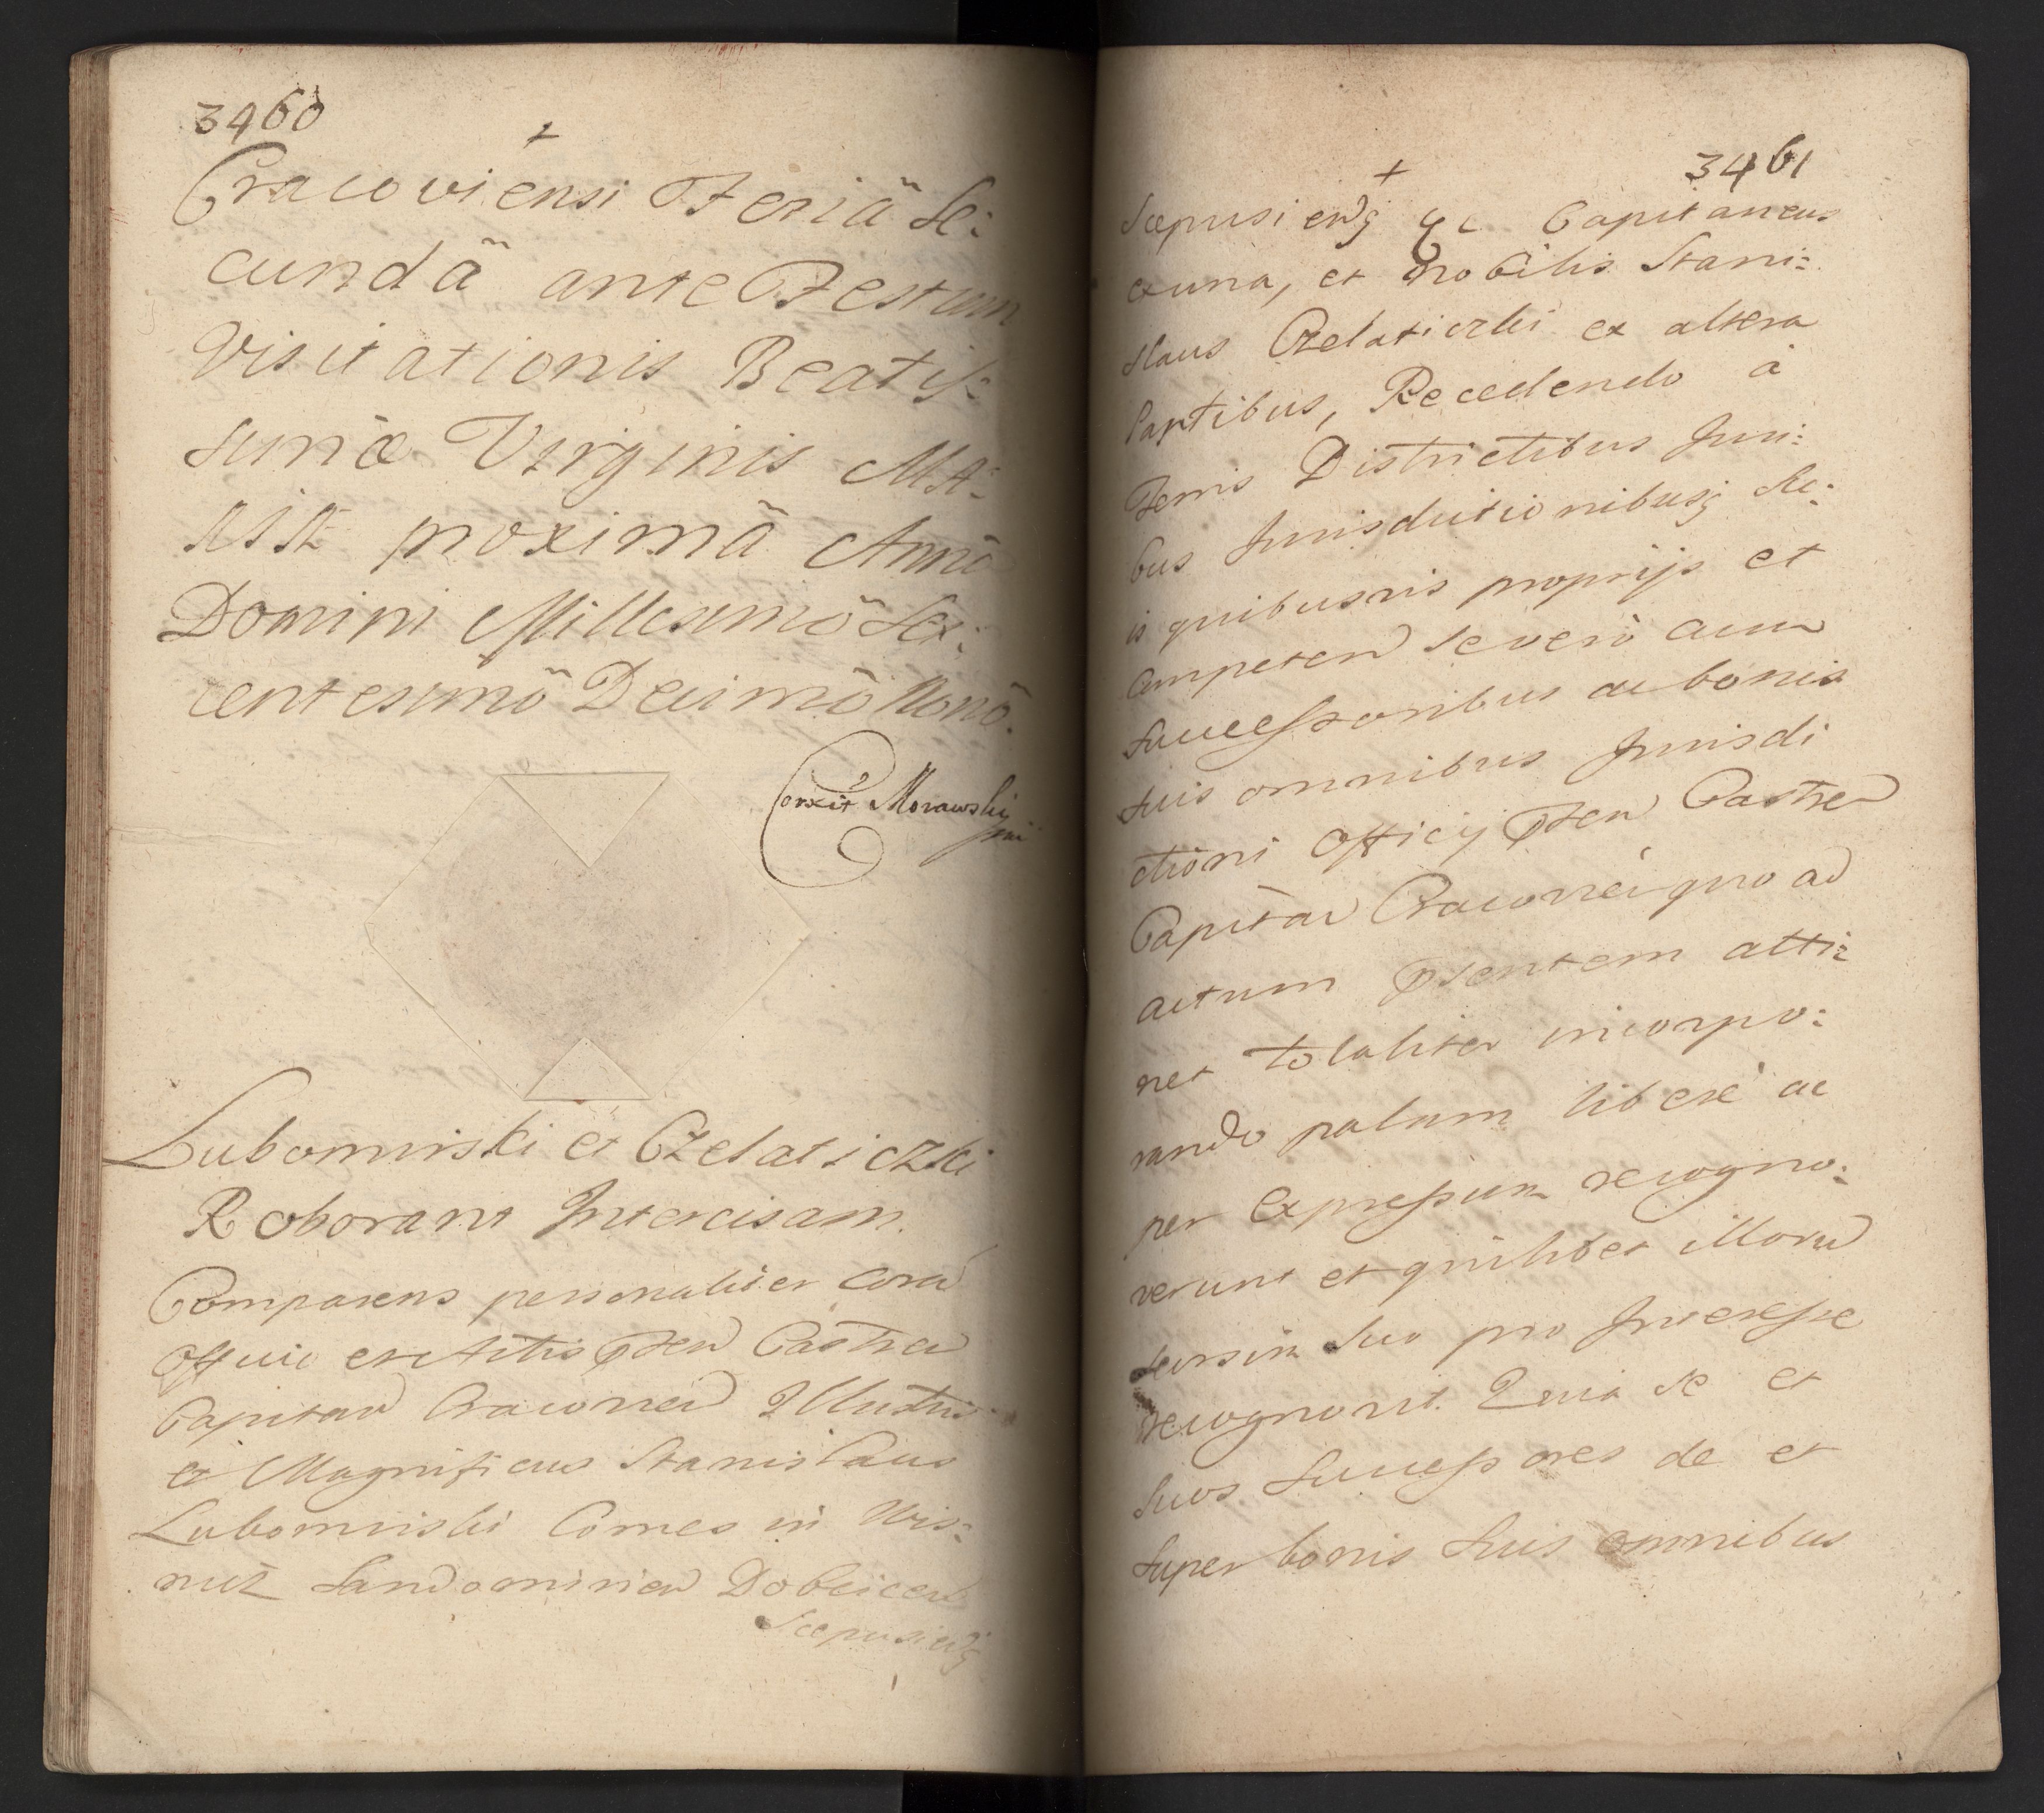 3460
+
Cracoviensi Feriâ Se:
cundâ ante Festum
Visitationis Beatis:
simæ Virginis MA:
RIÆ proximâ Annô
Domini Millesimô Sex:
centesimô Decimô Nonô.
Corexit Morawski
mp
Lubomirski et Czelaticzki
Roborant Intercisam.
Comparens personaliter Corā
Officio et Actis Pten Castren
Capitan Cracovien Illustris
et Magnificus Stanislaus
Lubomirski Comes in Wis:
nicz Sandomirien Dobcicen
Scepusienq
3461
+
Scepusienq &c Capitaneus
ex una, et Nobilis Stani:
slaus Czelaticzki ex altera
Partibus, Recedendo à
Terris Districtibus Juri:
bus Jurisdictionibusq Su:
is quibusvis proprijs et
Competen se verò cum
Successoribus ac bonis
suis omnibus Jurisdi
ctioni Officij Pten Castren
Capitan Cracovien quo ad
actum Psentem atti:
net totaliter incorpo:
rando palam liberè ac
per Expressum recogno:
verunt et quilibet illorū
seorsim suo pro Interesse
recognovit. Quia se et
suos Successores de et
super bonis suis omnibus